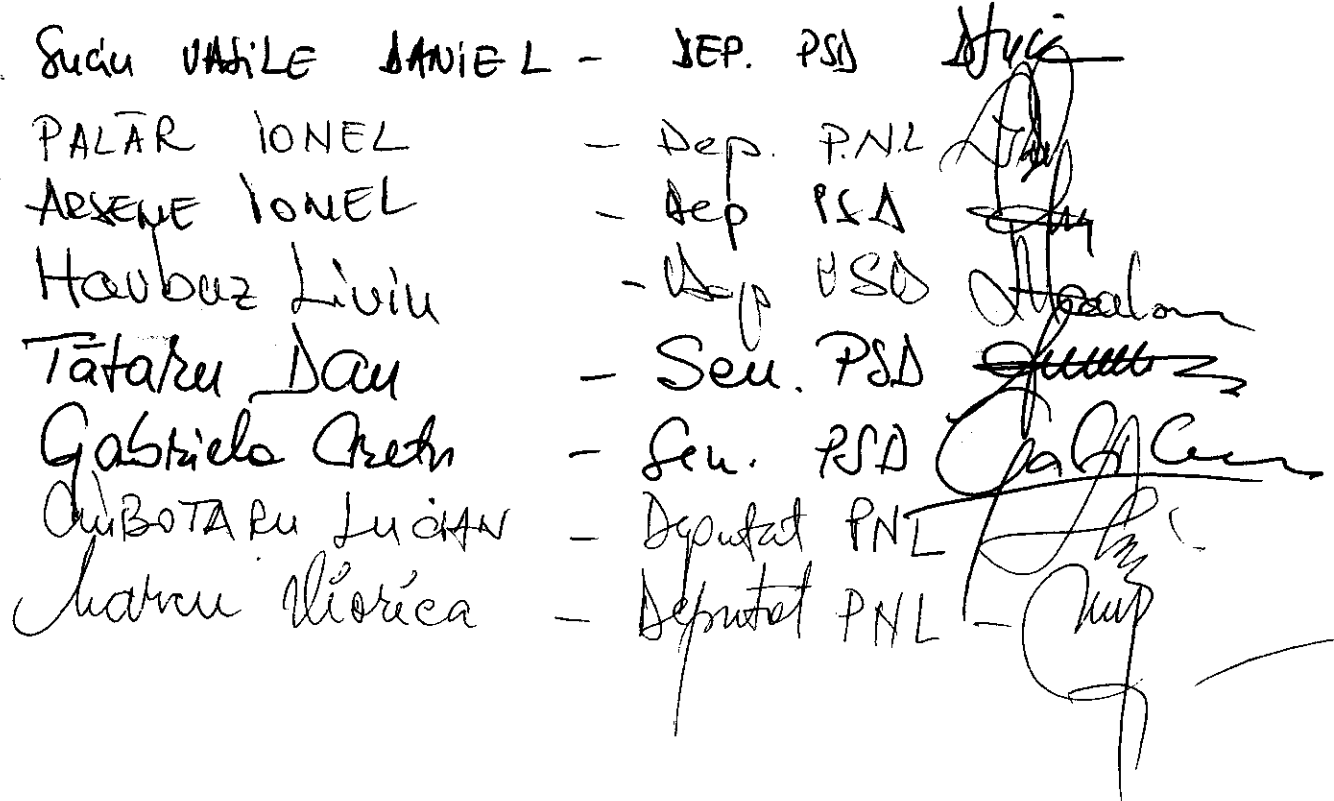 Suciu VASILE DANIEL - DEP. PSD
PALĂR IONEL - Dep. P.N.L
ARSENE IONEL - Dep PSD
Harbuz Liviu - Dep PSD
Tătaru Dan - Sen. PSD
Gabriela Crețu - Sen. PSD
CIUBOTARU LUCIAN - Deputat PNL
Marcu Viorica - Deputat PNL -